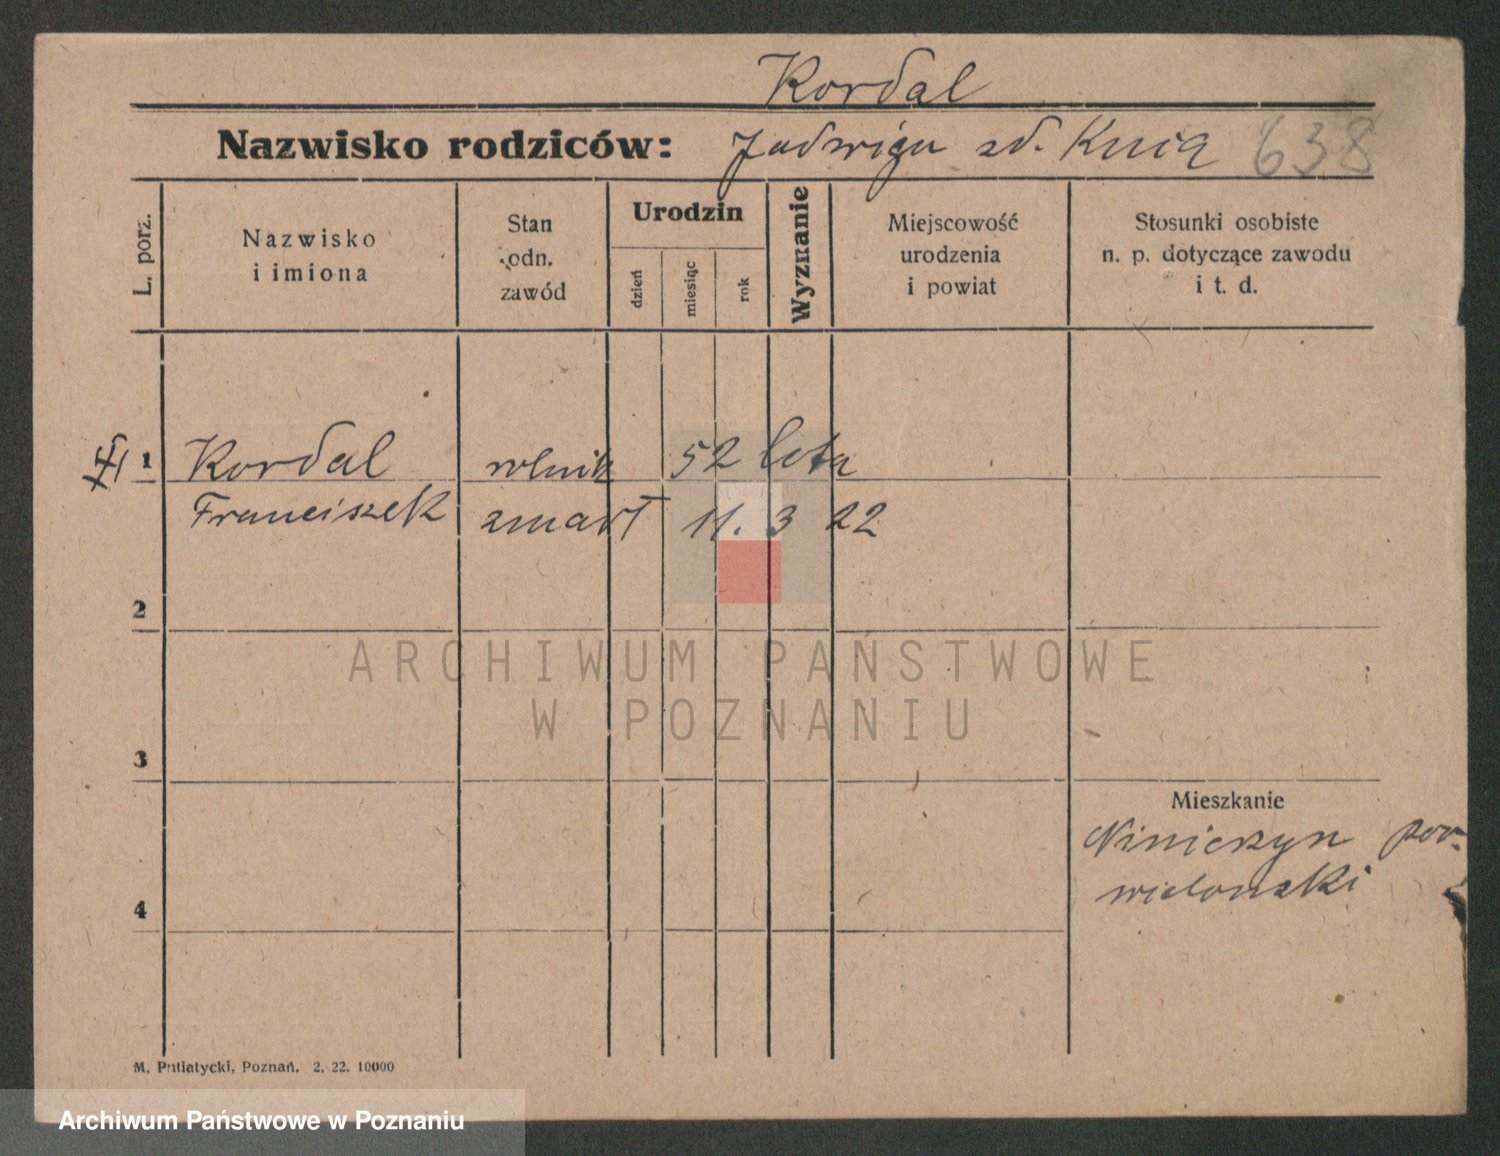 Kordal
Nazwisko rodziców: Jadwiga zd. Kucią 638
L. porz.
Nazwisko
i imiona
Stan
odn.
zawód
Urodzin
dzień
miesiąc
rok
Wyznanie
Miejscowość
urodzenia
i powiat
Stosunki osobiste
n. p. dotyczące zawodu
i t. d.
1 Kordal rolnik 52 lata
Franciszek zmarł 11. 3 22
2
ARCHIWUM PAŃSTWOWE
W POZNANIU
3
Mieszkanie
pow.
wieluński
4
M. Putiatycki, Poznań. 2. 22. 10000
Archiwum Państwowe w Poznaniu